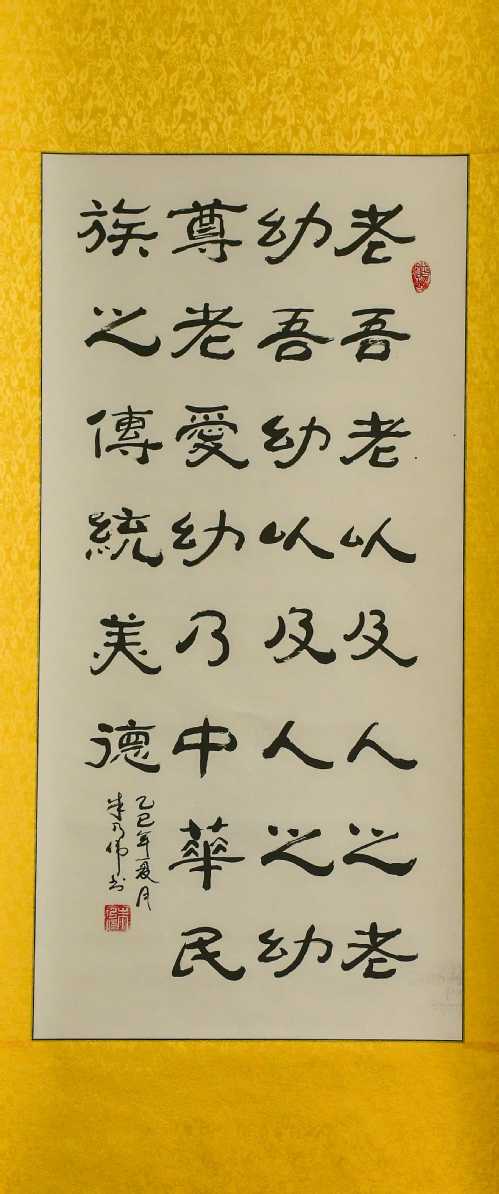 老吾老以及人之老
幼吾幼以及人之幼
尊老愛幼乃中華民
族之傳統美德
乙巳年夏月
朱乃偉书